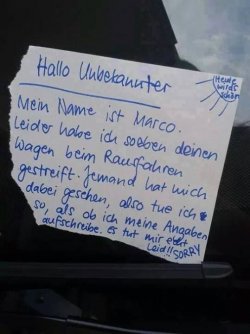 Hallo Unbekannter
Heute
wird's
schön
Mein Name ist Marco.
Leider habe ich soeben deinen
Wagen beim Rausfahren
gestreift. Jemand hat mich
dabei gesehen, also tue ich
so, als ob ich meine Angaben
aufschreibe. Es tut mir echt
Leid!! SORRY